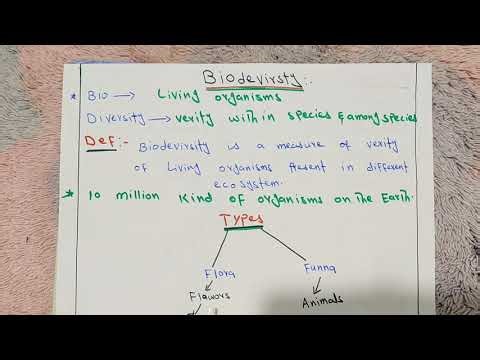 Biodevirsty:.
* Bio → Living organisms
Diversity → verity with in species & among species
Def:- Biodevirsty is a measure of verity
of Living organisms Present in different
ecosystem.
* 10 million Kind of organisms on the Earth.
Types
Flora Funna
Flawors Animals